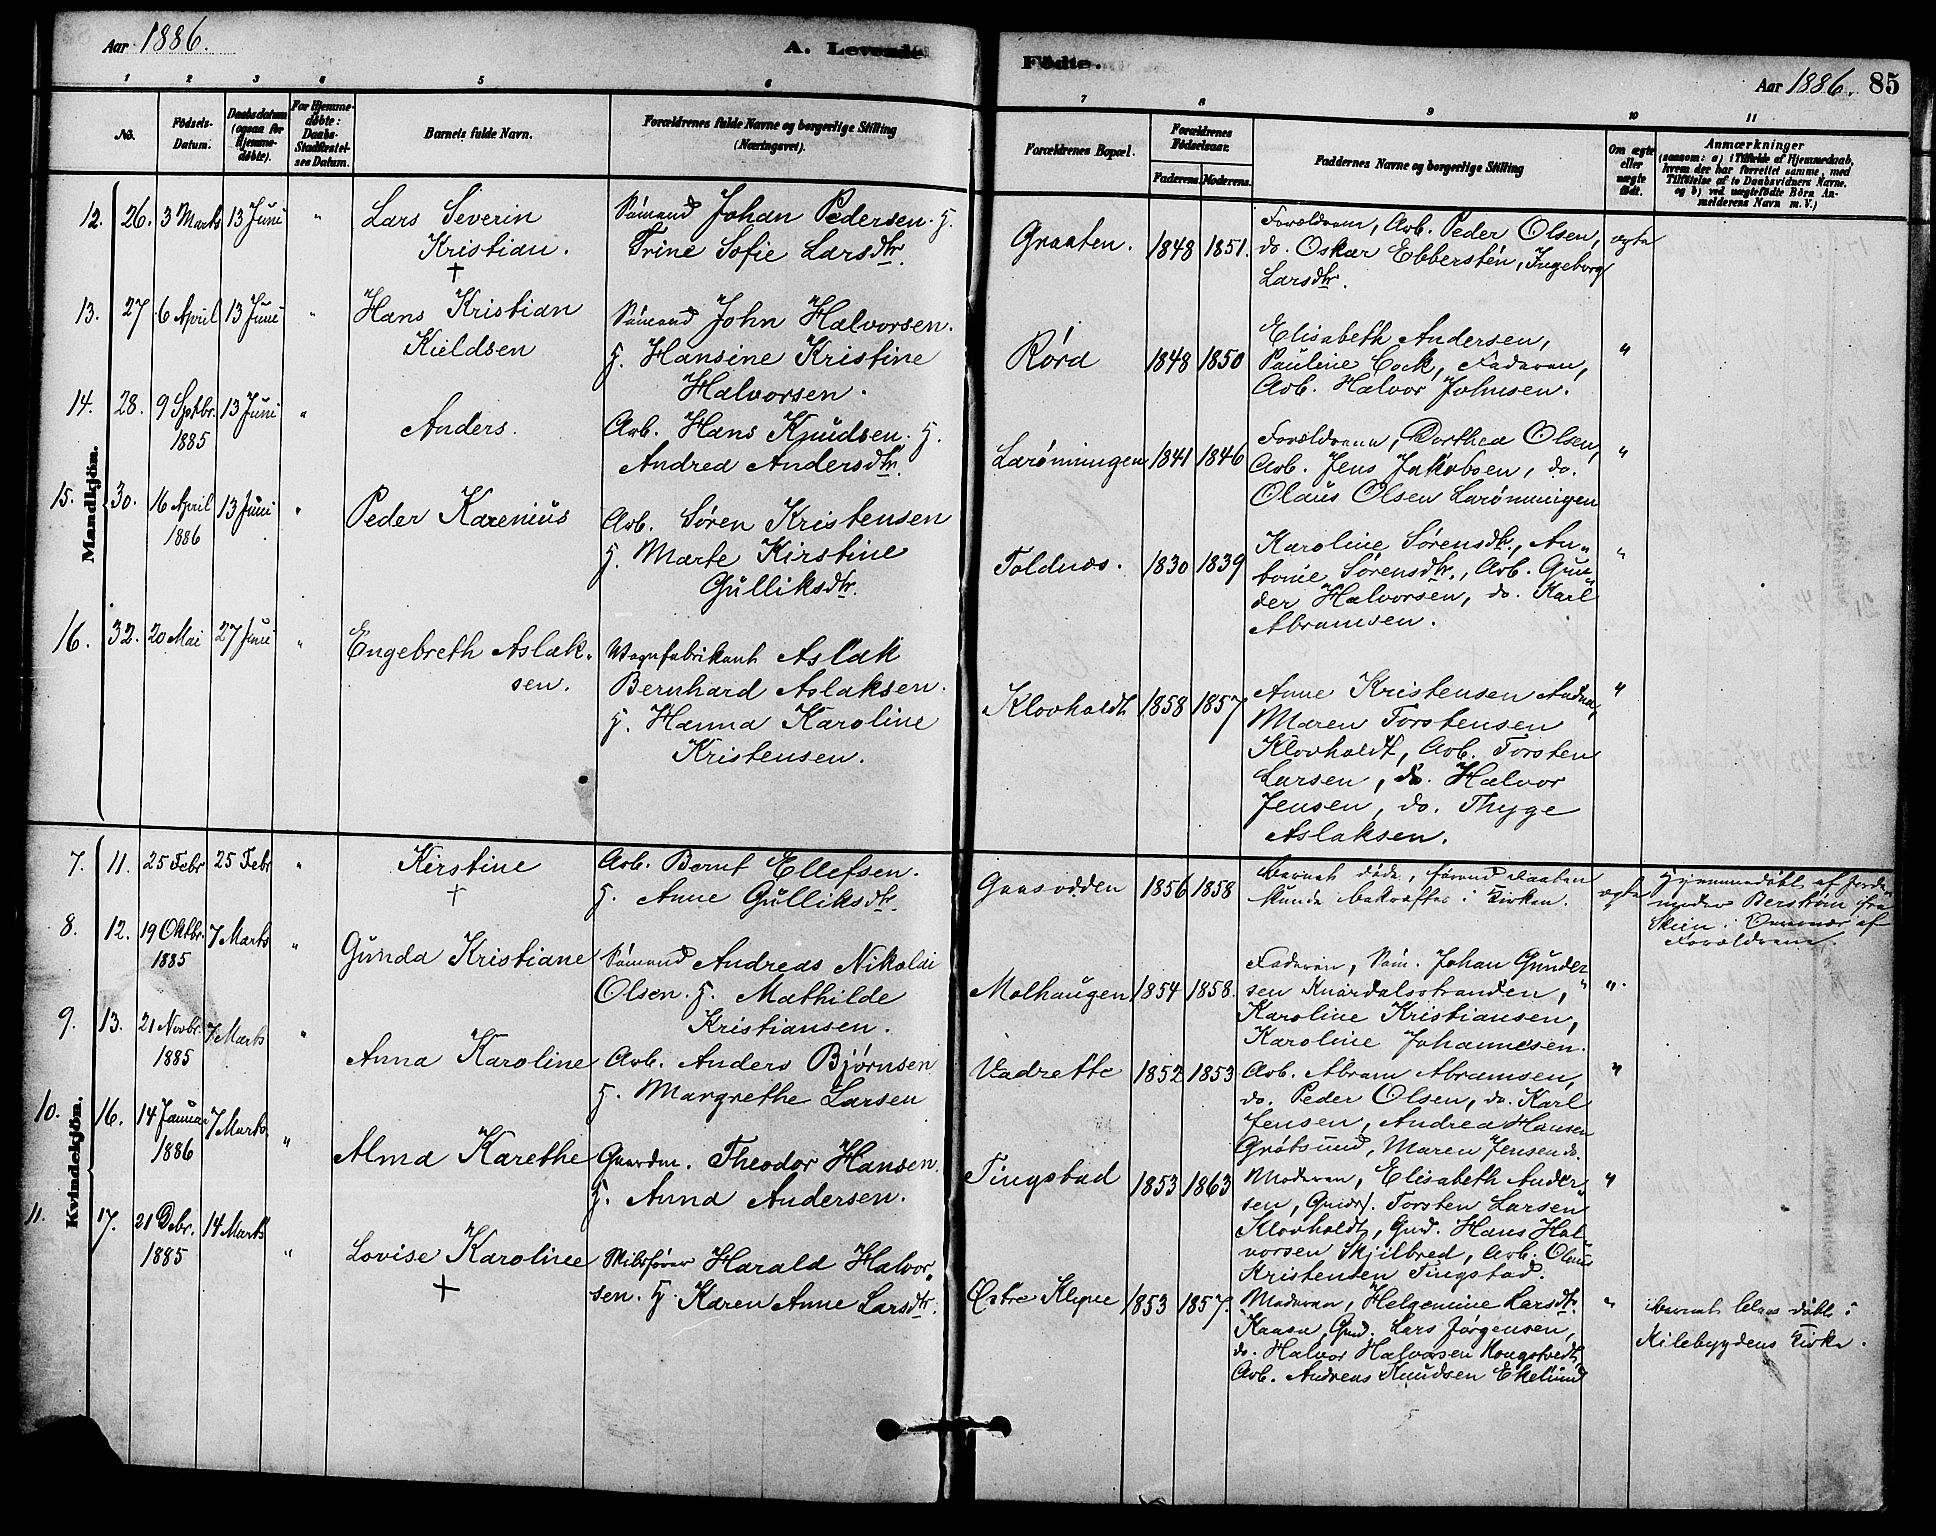 Aar 1886.
A. Levende
1 2 3 4 5 6
No.
Fødsels-
Datum.
Daabsdatum
(ogsaa for
Hjemme-
døbte).
For Hjemme-
døbte:
Daabs-
Stadfæstel-
ses Datum.
Barnets fulde Navn.
Forældrenes fulde Navne og borgerlige Stilling
(Næringsvei).
Mandkjøn.
12. 26. 3 Marts 13 Juni " Lars Severin
Kristian.
†
Sømand Johan Pedersen. H.
Trine Sofie Larsdtr.
13. 27 6 April 13 Juni " Hans Kristian
Kieldsen
Sømand John Halvorsen.
H. Hansine Kristine
Halvorsen.
14. 28. 9 Sptbr. 13 Juni "
1885
Anders.
Arb. Hans Knudsen. H.
Andrea Andersdtr.
15. 30. 16 April 13 Juni "
1886
Peder Karenius
Arb. Søren Kristensen
H. Marte Kirstine
Gulliksdtr.
16. 32. 20 Mai 27 Juni " Engebreth Aslak-
sen.
Vognfabrikant Aslak
Bernhard Aslaksen.
H. Hanna Karoline
Kristensen.
Kvindekjøn.
7. 11. 25 Febr 25 Febr " Kirstine
†
Arb. Bernt Ellefsen.
H. Anne Gulliksdtr.
8. 12. 19 Oktbr. 7 Marts "
1885
Gunda Kristiane
Sømand Andreas Nikolai
Olsen. H. Mathilde
Kristiansen.
9. 13. 21 Novbr. 7 Marts "
1885
Anna Karoline
Arb. Anders Bjørnsen
H. Margrethe Larsen
10. 16. 14 Januar 7 Marts "
1886
Alma Karethe
Gaardm. Theodor Hansen.
H. Anna Andersen.
11. 17. 21 Debr. 14 Marts "
1885
Lovise Karoline
†
Skibsfører Harald Halvor-
sen. H. Karen Anne Larsdtr.
Fødte.
Aar 1886. 85
7 8 9 10 11
Forældrenes Bopæl.
Forældrenes
Fødselsaar.
Faderens. Moderens.
Faddernes Navne og borgerlige Stilling
Om ægte
eller
uægte
født.
Anmærkninger
(saasom: a) i Tilfælde af Hjemmedaab,
hvem der har forrettet samme, med
Tilføielse af to Daabsvidners Navne.
og b) ved uægtefødte Børn An-
melderens Navn m. V.)
Graaten. 1848 1851. Forældrene, Arb. Peder Olsen, ægte
do. Oskar Ebbersten, Ingeborg
Larsdtr.
Rørd 1848 1850 Elisabeth Andersen, "
Pauline Cock, Faderen,
Arb. Halvor Johnsen.
Larønningen 1841 1846 Forældrene, Dorthea Olsen, "
Arb. Jens Jakobsen, do.
Olaus Olsen Larønningen
Toldnæs. 1830 1839 Karoline Sørensdtr., An- "
tonie Sørensdtr., Arb. Gun-
der Halvorsen, do. Karl
Abramsen.
Klovholdt 1858 1857 Anne Kristensen "
Maren Torstensen
Klovholdt, Arb. Torsten
Larsen, do. Halvor
Jensen, do. Thyge
Aslaksen.
Gaasodden 1856 1858 Barnet døde, førend Daaben ægte
kunde bekræftes i Kirken.
Hjemmedøbt af Jorde-
moder Berstrøm fra
Skien. af
Forældrene.
Molhaugen 1854 1858. Faderen, Søm. Johan Gunder-
sen Knardalsstranden, "
Karoline Kristiansen,
Karoline Johannesen.
Vadrette 1852 1853 Arb. Abram Abramsen, "
do. Peder Olsen, do. Karl
Jensen, Andrea Hansen
Grøtsund, Maren Jensen do.
Tingstad 1853 1863 Moderen, Elisabeth Ander- "
sen, Gmdf. Torsten Larsen
Klovholdt, Gmd. Hans Hal-
vorsen Skjilbred, Arb. Olaus
Kristensen Tingstad.
Østre Klyve 1853 1857. Moderen, Helgemine Larsdtr. "
Kaasa, Gmd. Lars Jørgensen,
do. Halvor Halvorsen
Arb. Andreas Knudsen Ekelund
Barnet blev døbt i
Kilebygdens Kirke.